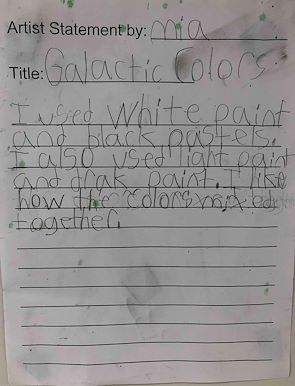 Artist Statement by: mia
Title: Galactic Colors
I used white paint
and black pastels.
I also used light paint
and drak paint. I like
how the colors mixed
together.